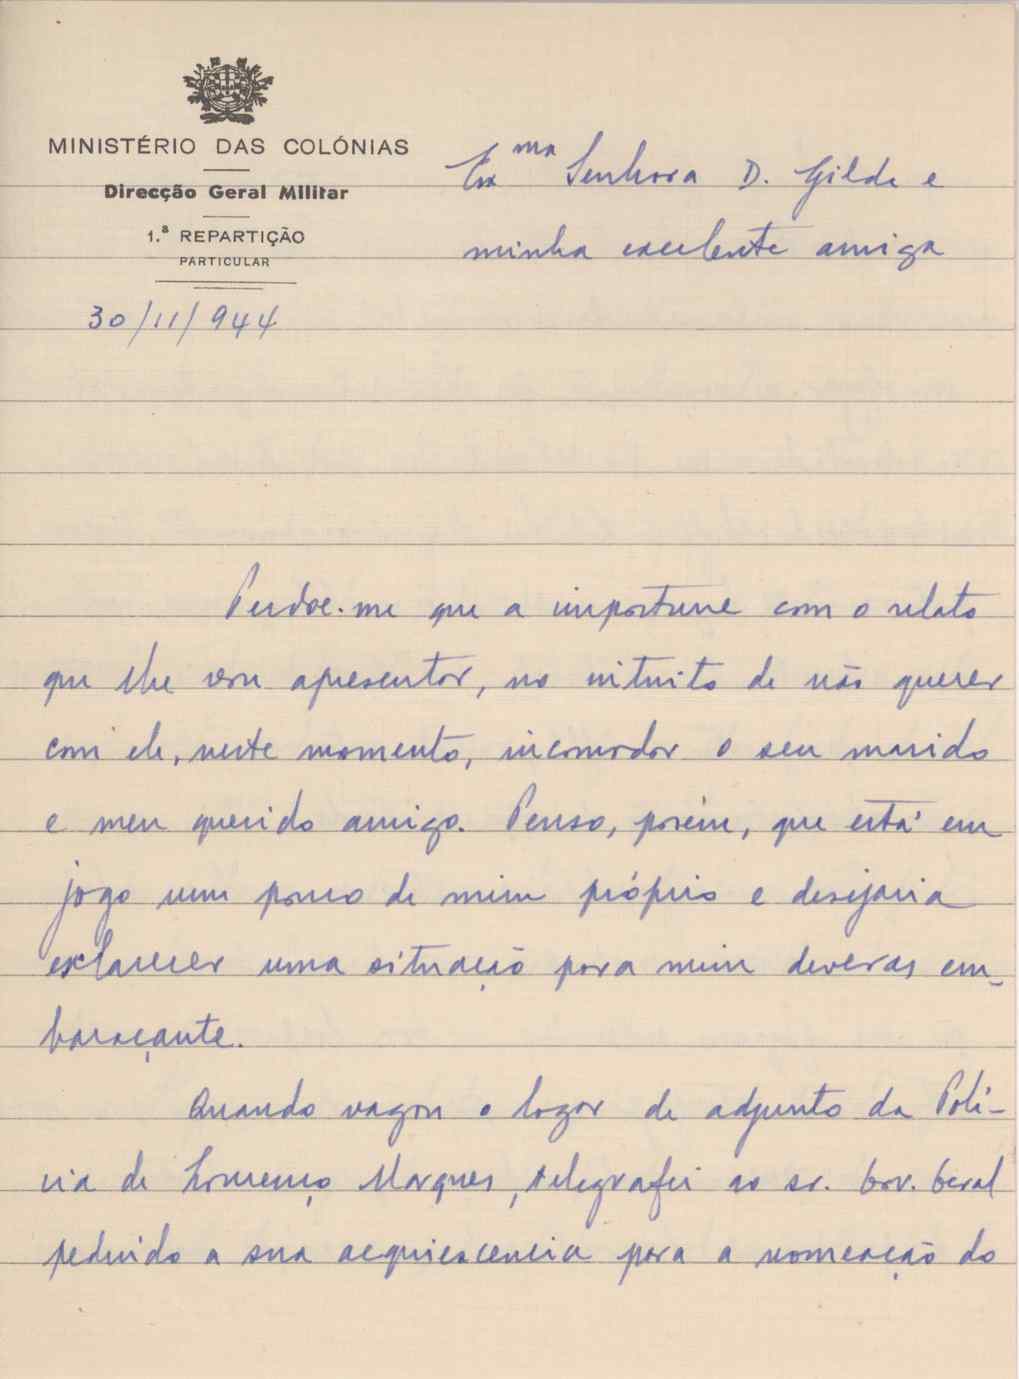 MINISTÉRIO DAS COLÓNIAS
Direcção Geral Militar
1.ª REPARTIÇÃO
PARTICULAR
30/11/944
Ex^ma Senhora D. Gilda e
minha excelente amiga
Perdoe-me que a importune com o relato
que lhe vou apresentar, no intuito de não querer
com ele, neste momento, incomodar o seu marido
e meu querido amigo. Penso, porém, que está em
jogo um pouco de mim próprio e desejaria
esclarecer uma situação para mim deveras em-
baraçante.
Quando vagou o lugar de adjunto da Polí-
cia de Lourenço Marques, telegrafei ao sr. Gov. Geral
pedindo a sua acquiescencia para a nomeação do